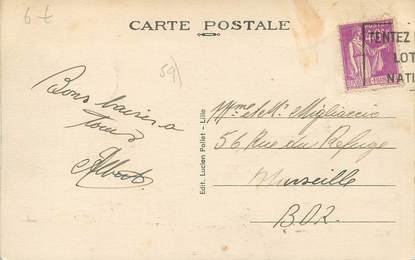 6 €
CARTE POSTALE
59
TENTEZ
LOT
NATI
Bons baisers a
tous
Albert
Edit. Lucien Pollet - Lille
Mme et Mr Migliaccio
56 Rue du Refuge
Marseille
B.D.R.